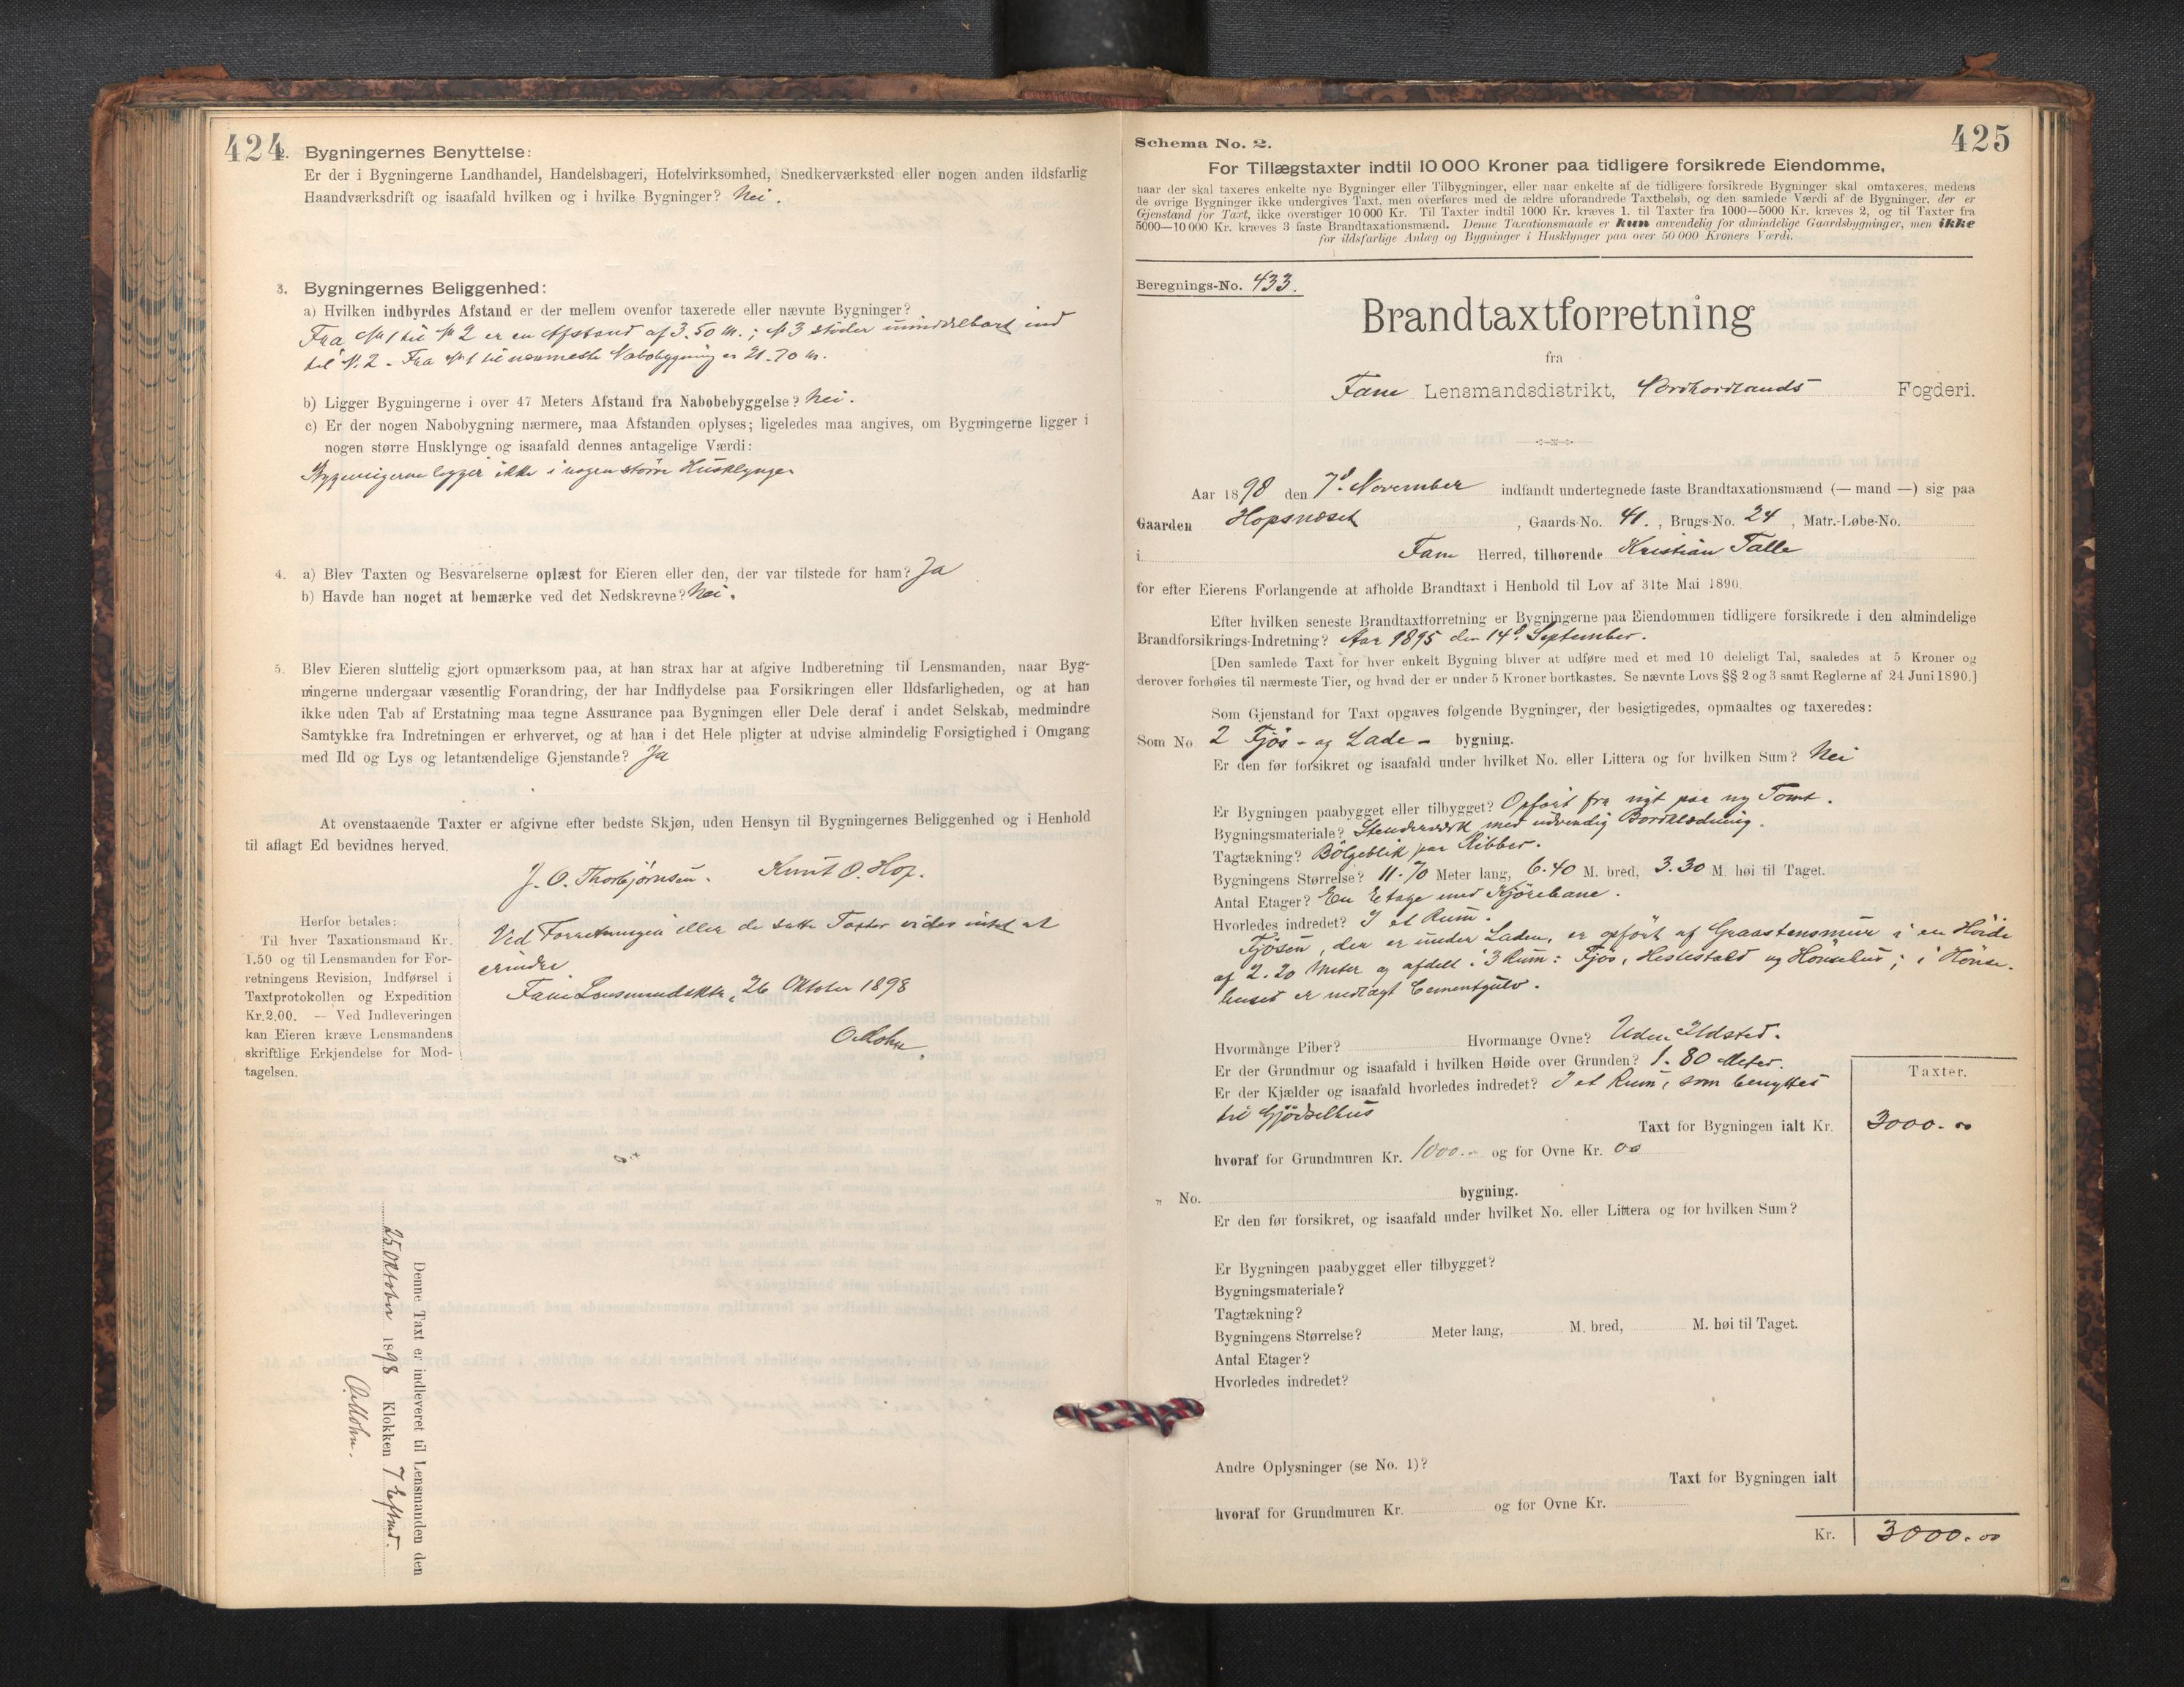 424
2. Bygningernes Benyttelse:
Er der i Bygningerne Landhandel, Handelsbageri, Hotelvirksomhed, Snedkerværksted eller nogen anden ildsfarlig
Haandværksdrift og isaafald hvilken og i hvilke Bygninger? Nei.
3. Bygningernes Beliggenhed:
a) Hvilken indbyrdes Afstand er der mellem ovenfor taxerede eller nævnte Bygninger?
Fra No 1 til No 2 er en Afstand af 3.50 m.; No 3 støder umiddelbart ind
til No. 2 - Fra No 1 til nærmeste Nabobygning er 21.70 m.
b) Ligger Bygningerne i over 47 Meters Afstand fra Nabobebyggelse? Nei.
c) Er der nogen Nabobygning nærmere, maa Afstanden oplyses; ligeledes maa angives, om Bygningerne ligger i
nogen større Husklynge og isaafald dennes antagelige Værdi:
Bygningerne ligger ikke i nogen større Husklynge.
4. a) Blev Taxten og Besvarelserne oplæst for Eieren eller den, der var tilstede for ham? Ja
b) Havde han noget at bemærke ved det Nedskrevne? Nei.
5. Blev Eieren sluttelig gjort opmærksom paa, at han strax har at afgive Indberetning til Lensmanden, naar Byg-
ningerne undergaar væsentlig Forandring, der har Indflydelse paa Forsikringen eller Ildsfarligheden, og at han
ikke uden Tab af Erstatning maa tegne Assurance paa Bygningen eller Dele deraf i andet Selskab, medmindre
Samtykke fra Indretningen er erhvervet, og at han i det Hele pligter at udvise almindelig Forsigtighed i Omgang
med Ild og Lys og letantændelige Gjenstande? Ja
At ovenstaaende Taxter er afgivne efter bedste Skjøn, uden Hensyn til Bygningernes Beliggenhed og i Henhold
til aflagt Ed bevidnes herved.
J. O. Thorbjørnsen. Knut O. Hop.
Herfor betales:
Til hver Taxationsmand Kr.
1.50 og til Lensmanden for For-
retningens Revision, Indførsel i
Taxtprotokollen og Expedition
Kr. 2.00. — Ved Indleveringen
kan Eieren kræve Lensmandens
skriftlige Erkjendelse for Mod-
tagelsen.
Ved Forretningen eller de satte Taxter vides intet at
erindre.
Fane Lensmandsktr., 26 Oktober 1898
O Mohn.
Denne Taxt er indleveret til Lensmanden den
25 Oktober 1898 Klokken 7 Eftmd.
O. Mohn.
425
Schema No. 2.
For Tillægstaxter indtil 10 000 Kroner paa tidligere forsikrede Eiendomme,
naar der skal taxeres enkelte nye Bygninger eller Tilbygninger, eller naar enkelte af de tidligere forsikrede Bygninger skal omtaxeres, medens
de øvrige Bygninger ikke undergives Taxt, men overføres med de ældre uforandrede Taxtbeløb, og den samlede Værdi af de Bygninger, der er
Gjenstand for Taxt, ikke overstiger 10 000 Kr. Til Taxter indtil 1000 Kr. kræves 1, til Taxter fra 1000—5000 Kr. kræves 2, og til Taxter fra
5000—10 000 Kr. kræves 3 faste Brandtaxationsmænd. Denne Taxationsmaade er kun anvendelig for almindelige Gaardsbygninger, men ikke
for ildsfarlige Anlæg og Bygninger i Husklynger paa over 50 000 Kroners Værdi.
Beregnings-No. 433.
Brandtaxtforretning
fra
Fane Lensmandsdistrikt, Nordhordlands Fogderi.
Aar 1898 den 7d. November indfandt undertegnede faste Brandtaxationsmænd (— mand —) sig paa
Gaarden Hopsnæset, Gaards-No. 41., Brugs-No. 24, Matr.-Løbe-No.
i Fane Herred, tilhørende Kristian Talle
for efter Eierens Forlangende at afholde Brandtaxt i Henhold til Lov af 31te Mai 1890.
Efter hvilken seneste Brandtaxtforretning er Bygningerne paa Eiendommen tidligere forsikrede i den almindelige
Brandforsikrings-Indretning? Aar 1895 den 14d. September.
[Den samlede Taxt for hver enkelt Bygning bliver at udføre med et med 10 deleligt Tal, saaledes at 5 Kroner og
derover forhøies til nærmeste Tier, og hvad der er under 5 Kroner bortkastes. Se nævnte Lovs §§ 2 og 3 samt Reglerne af 24 Juni 1890.]
Som Gjenstand for Taxt opgaves følgende Bygninger, der besigtigedes, opmaaltes og taxeredes:
Som No 2 Fjøs- og Lade- bygning.
Er den før forsikret og isaafald under hvilket No. eller Littera og for hvilken Sum? Nei
Er Bygningen paabygget eller tilbygget? Opført fra nyt paa ny Tomt.
Bygningsmateriale? Stenderværk med udvendig Bordklædning.
Tagtækning? Bølgeblik paa Ribber.
Bygningens Størrelse? 11.70 Meter lang, 6.40 M. bred, 3.30 M. høi til Taget.
Antal Etager? En Etage med Kjørebane.
Hvorledes indredet? I et Rum.
Fjøsen, der er under Laden, er opført af Graastensmur i en Høide
af 2.20 Meter og afdelt i 3 Rum: Fjøs, Hestestald og Hønsehus; i Hønse-
huset er nedlagt Cementgulv.
Hvormange Piber? Hvormange Ovne? Uden Ildsted.
Er der Grundmur og isaafald i hvilken Høide over Grunden? 1.80 Meter.
Er der Kjælder og isaafald hvorledes indredet? I et Rum, som benyttes
til Gjødselhus
Taxter.
Taxt for Bygningen ialt Kr. 3000.00
hvoraf for Grundmuren Kr. 1000.- og for Ovne Kr. 00
„ No. bygning.
Er den før forsikret, og isaafald under hvilket No. eller Littera og for hvilken Sum?
Er Bygningen paabygget eller tilbygget?
Bygningsmateriale?
Tagtækning?
Bygningens Størrelse? Meter lang, M. bred, M. høi til Taget.
Antal Etager?
Hvorledes indredet?
Andre Oplysninger (se No. 1)?
Taxt for Bygningen ialt
hvoraf for Grundmuren Kr. og for Ovne Kr.
Kr. 3000.00